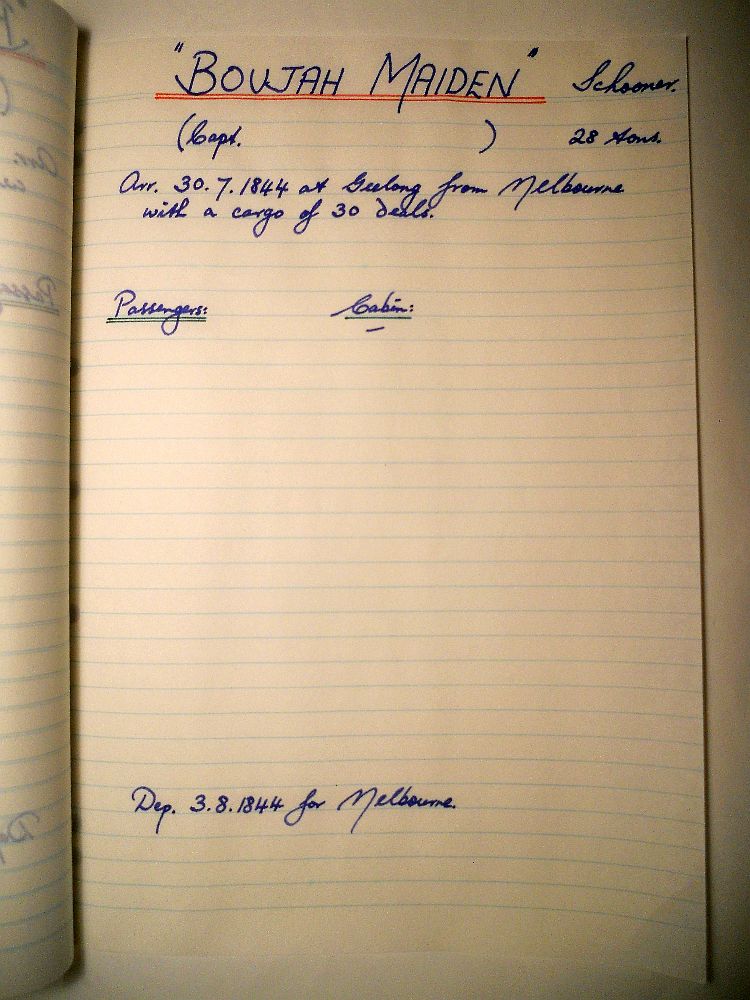 "BOUJAH MAIDEN" Schooner.
(Capt. ) 28 tons.
Arr. 30.7.1844 at Geelong from Melbourne
with a cargo of 30 deals.
Passengers: Cabin:
—
Dep. 3.8.1844 for Melbourne.